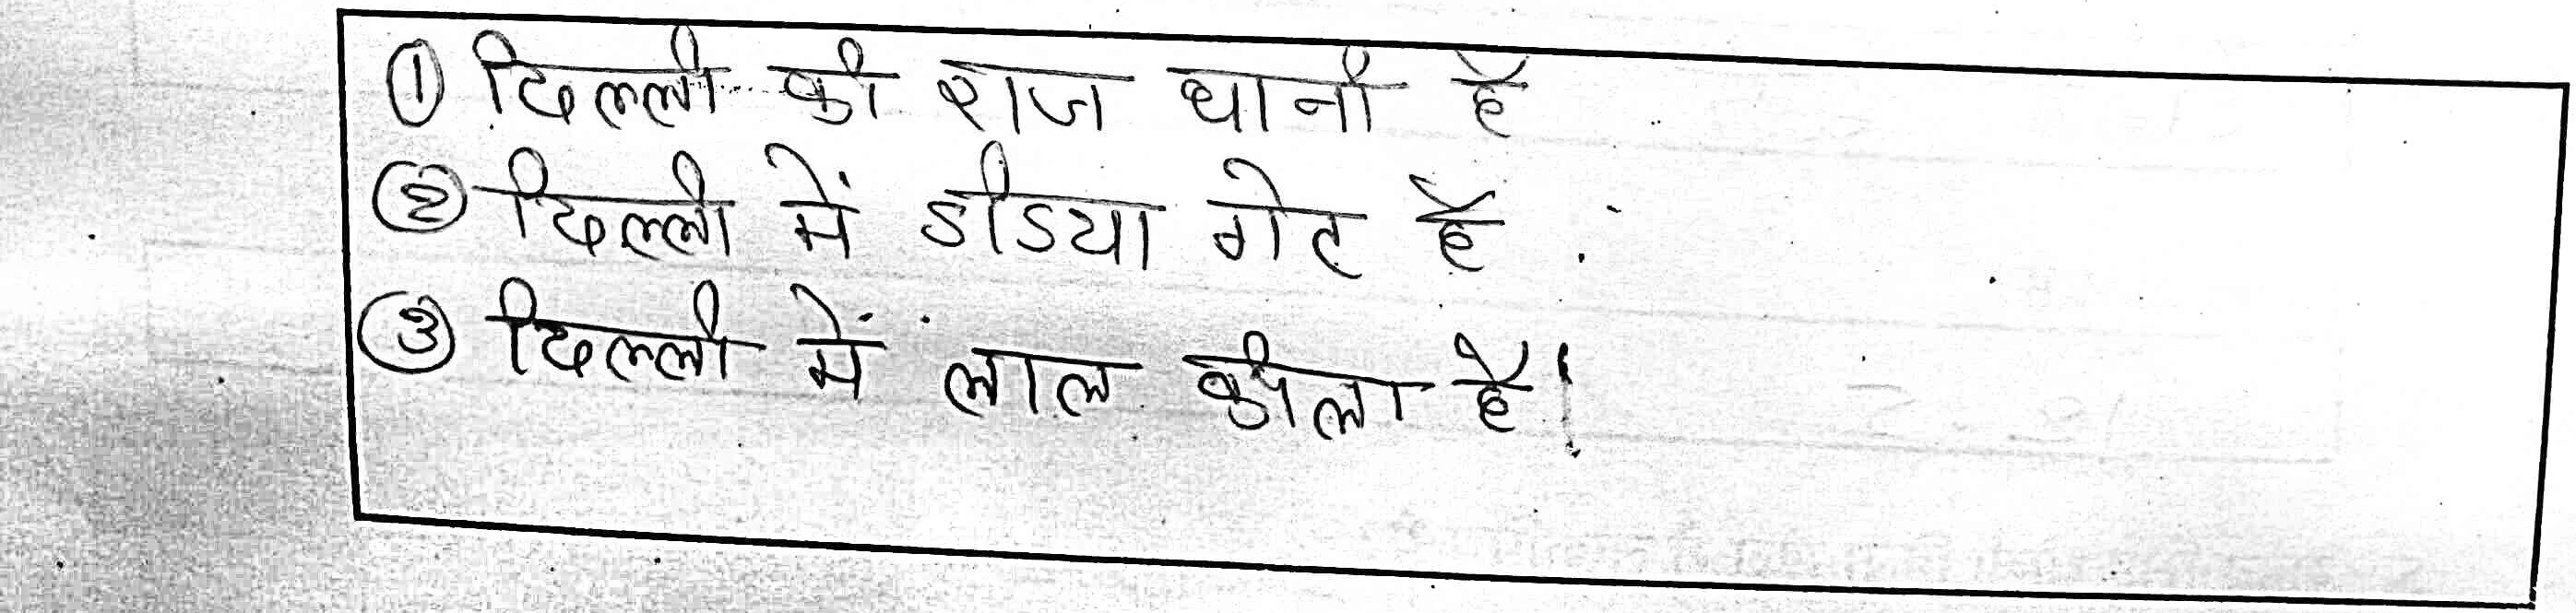 ① दिल्ली की राज धानी है
② दिल्ली में डीडया गेट है
③ दिल्ली में लाल कीला है।